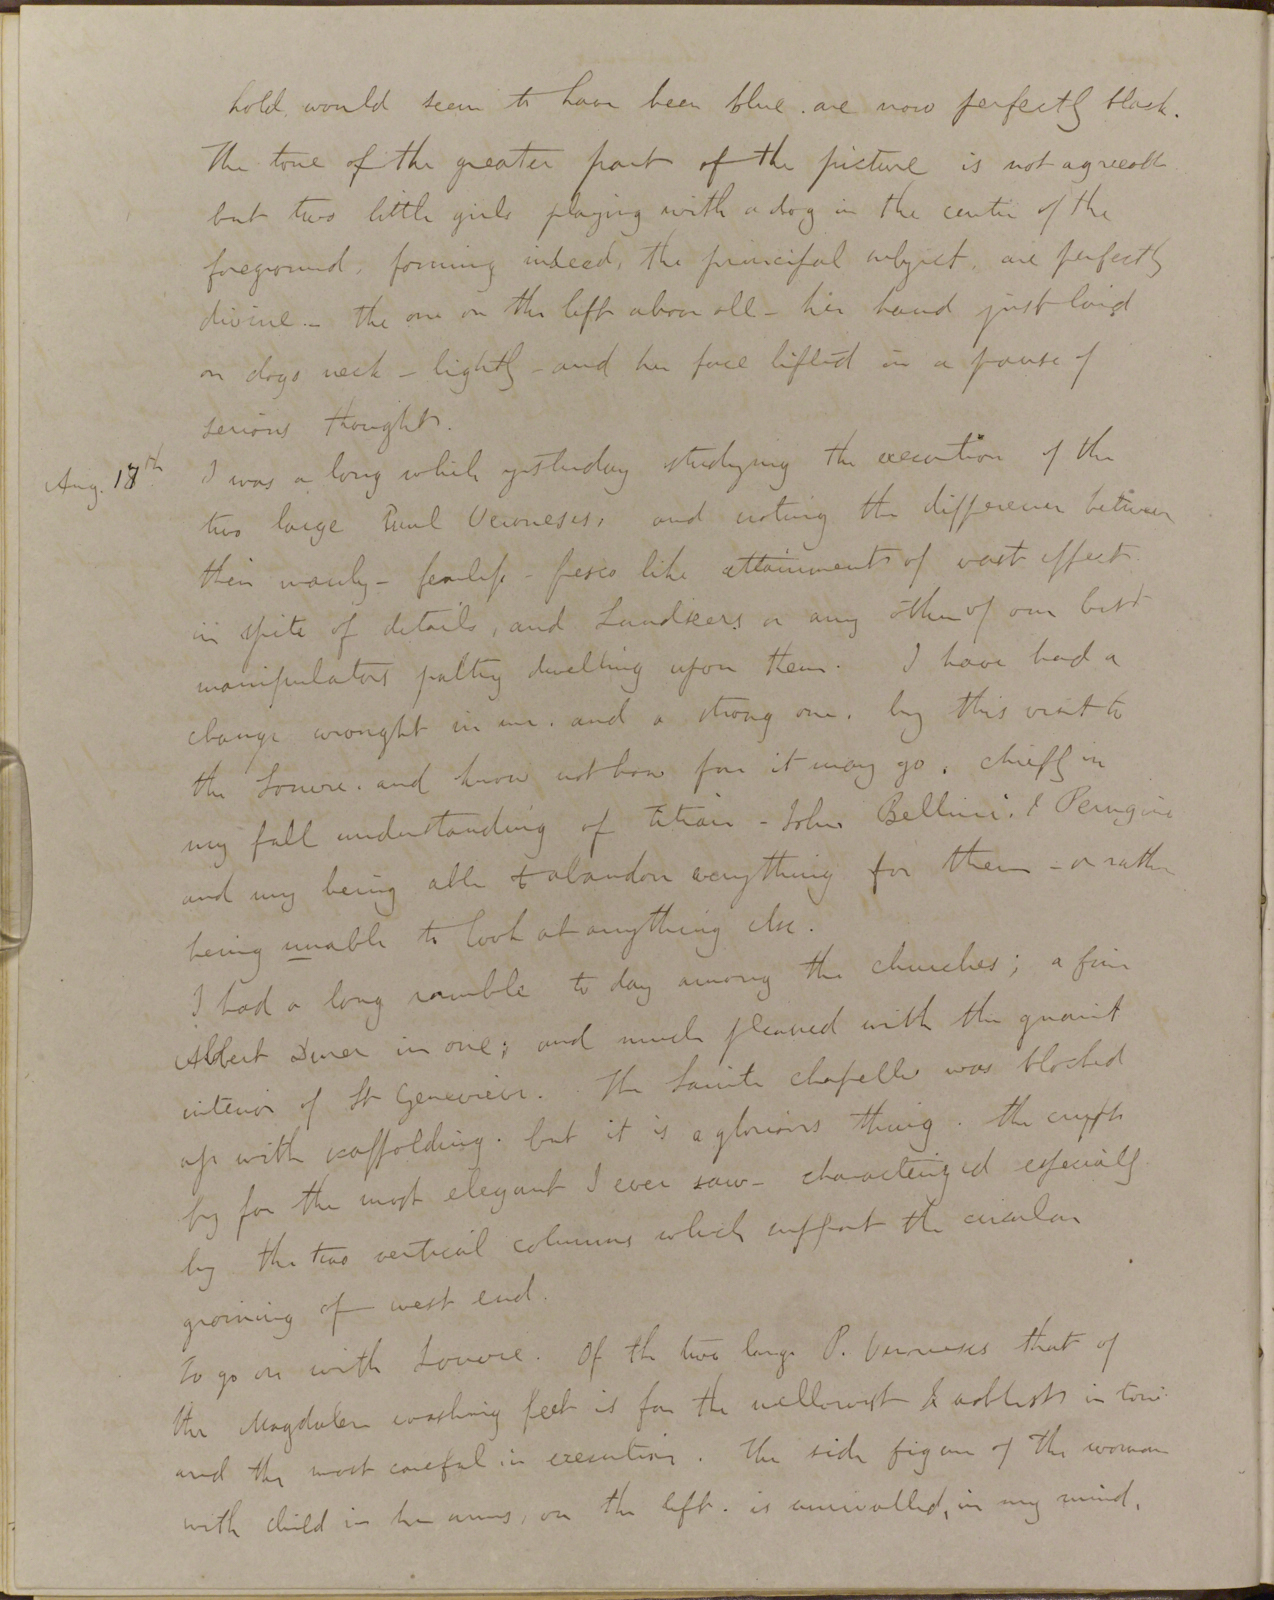 hold would seem to have been blue. are now perfectly black.
The tone of the greater part of the picture is not agreeable
but two little girls playing with a dog in the center of the
foreground, forming indeed, the principal subject, are perfectly
divine - the one on the left above all - her hand just laid
on dogs neck - lightly - and her face lifted in a pause of
serious thought.
Aug. 18th. I was a long while yesterday studying the execution of the
two large Paul Veroneses, and noting the difference between
their manly - fearless - fresco like attainments of vast effect
in spite of details, and Landseers or any other of our best
manipulators paltry dwelling upon them. I have had a
change wrought in me. and a strong one. by this visit to
the Louvre. and know not how far it may go. chiefly in
my full understanding of Titian - John Bellini. & Perugino
and my being able to abandon everything for them - or rather
being unable to look at anything else.
I had a long ramble to day among the churches; a fine
Albert Durer in one; and much pleased with the quaint
interior of St Genevieve. The Sainte chapelle was blocked
up with scaffolding. but it is a glorious thing. the crypt
by far the most elegant I ever saw - characterized especially
by the two vertical columns which support the circular
groining of west end.
To go on with Louvre. Of the two large P. Veroneses that of
the Magdalen washing feet is far the mellowest & noblest in tone
and the most careful in execution. The side figure of the woman
with child in her arms, on the left. is unrivalled, in my mind,